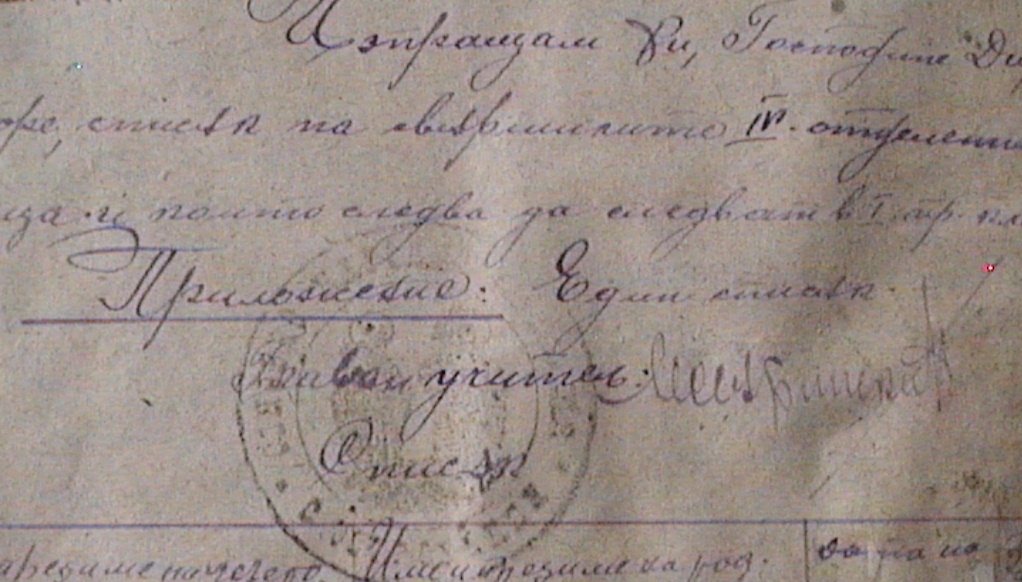 Изпращам Ви, Господине Ди
оре, списък на свършилите IV. отделение
ица и които следва да следват в I. пр. кл
Приложение: Един списък.
Главен учител:
Списък
презиме на учен. Име и презиме на род.